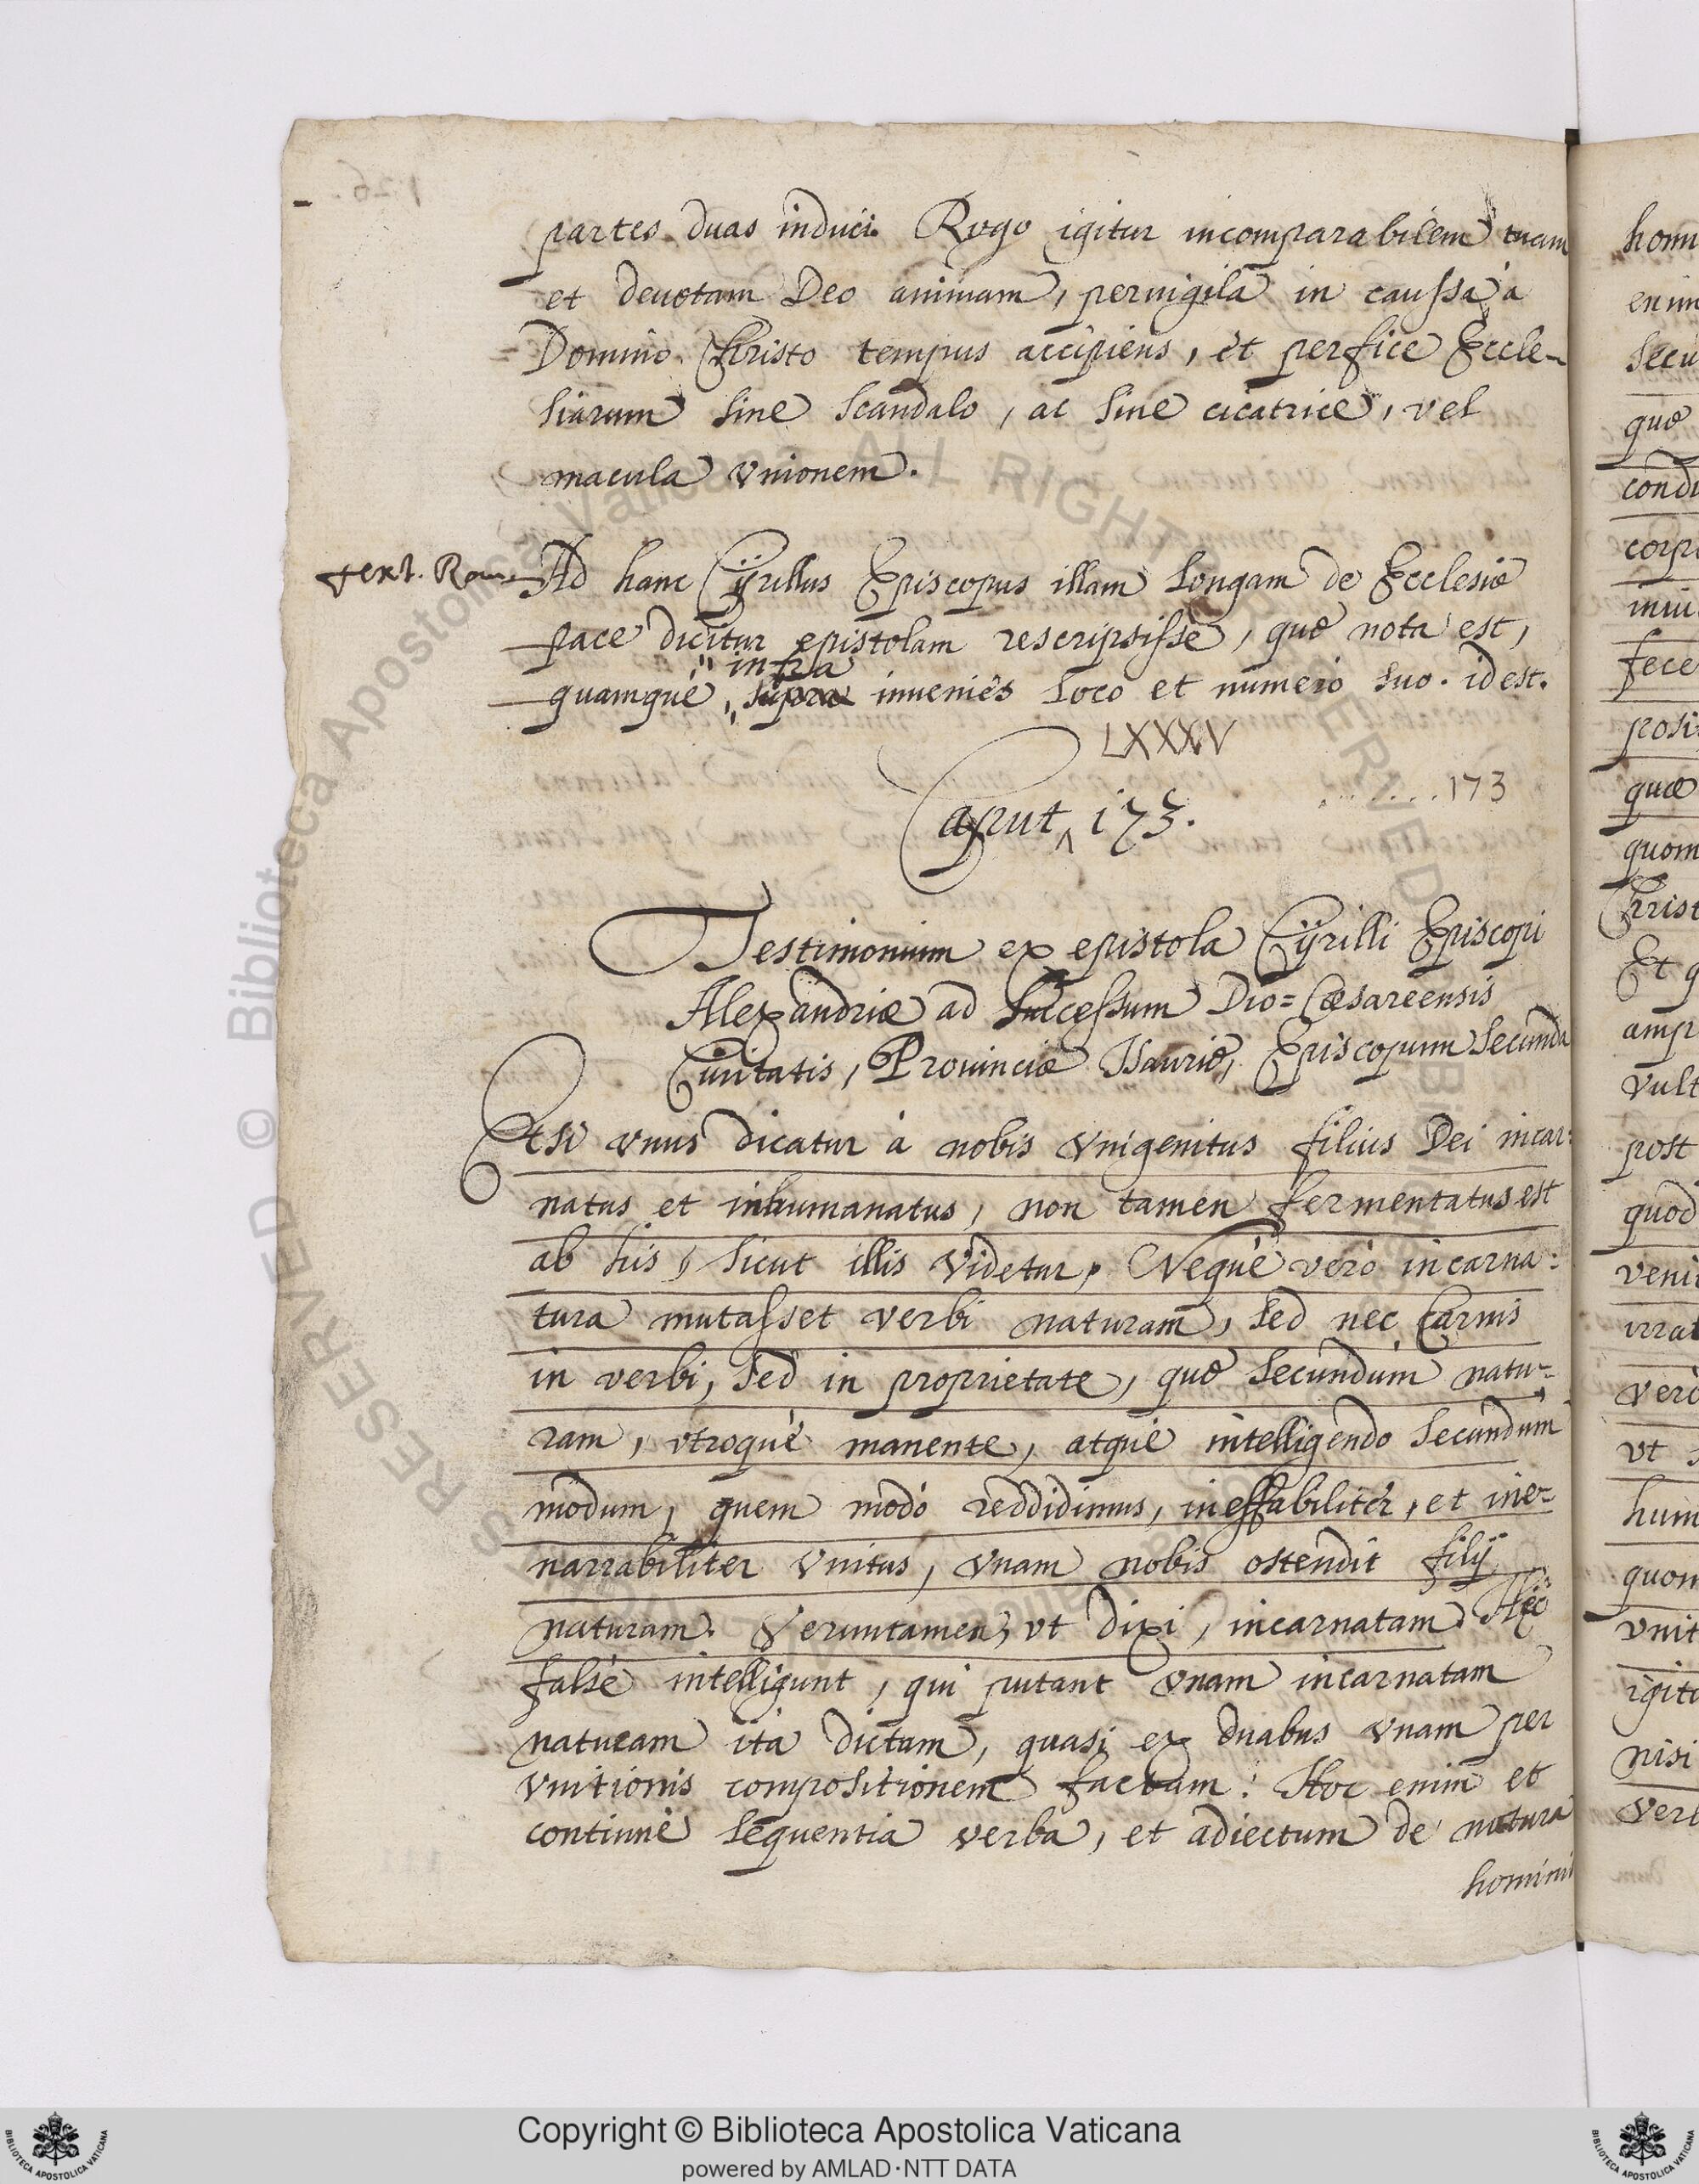 partes duas induci. Rogo igitur incomparabilem tuam
et deuotam Deo animam, peruigila in caussa à
Domino Christo tempus accipiens, et perfice Eccle-
siarum sine scandalo, ac sine cicatrice, vel
macula vnionem.
text. Rom. Ad hanc Cÿrillus Episcopus illam longam de Ecclesiæ
pace dicitur epistolam rescripsisse, quæ nota est,
infra
quamque, supra inuenies loco et numero suo. id est.
LXXXV
........173
Caput 173.
Testimonium ex epistola Cÿrilli Episcopi
Alexandriæ ad Successum Dio=Cæsareensis
Ciuitatis, Prouinciæ Isauriæ, Episcopum secunda
Etsi vnus dicatur à nobis vnigenitus filius Dei incar:
natus et inhumanatus, non tamen fermentatus est
ab his, sicut illis videtur, Neque verò incarna:
tura mutasset verbi naturam, sed nec Carnis
in verbi, sed in proprietate, quæ secundum natu-
ram, vtroque manente, atque intelligendo secundum
modum, quem modò reddidimus, ineffabiliter, et ine-
narrabiliter vnitus, vnam nobis ostendit filij
naturam. Veruntamen, vt dixi, incarnatam. Hæc
falsè intelligunt, qui putant vnam incarnatam
naturam ità dictam, quasi ex duabus vnam per
vnitionis compositionem factam. Hoc enim et
continuè sequentia verba, et adiectum de natura
homini
homi
enim
secu
quæ
condi
corpo
inui
fece
posi
quæ
quom
Christ
Et q
amp
vult
post
quod
veni
irrat
verò
vt
hum
quom
vnit
igitu
nisi
vert
Copyright © Biblioteca Apostolica Vaticana
powered by AMLAD·NTT DATA